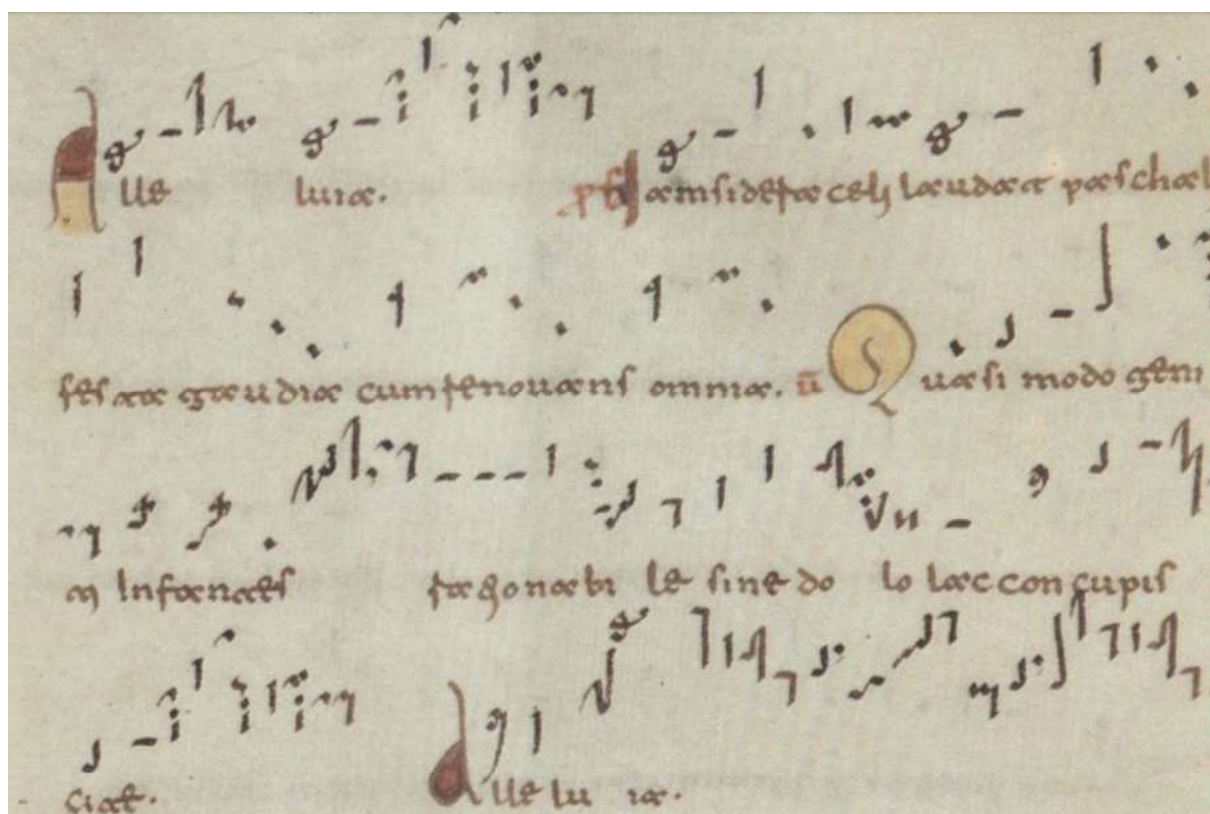 Alle luia. Iam sidera celi laudat paschal
fes ta gaudia cum renovans omnia. Quasi modo geni
ti Infantes rationabi le sine do lo lac concupis
cite. Alle lu ia.